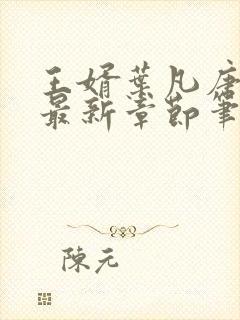 王婿葉凡唐
最新章節筆
陳元